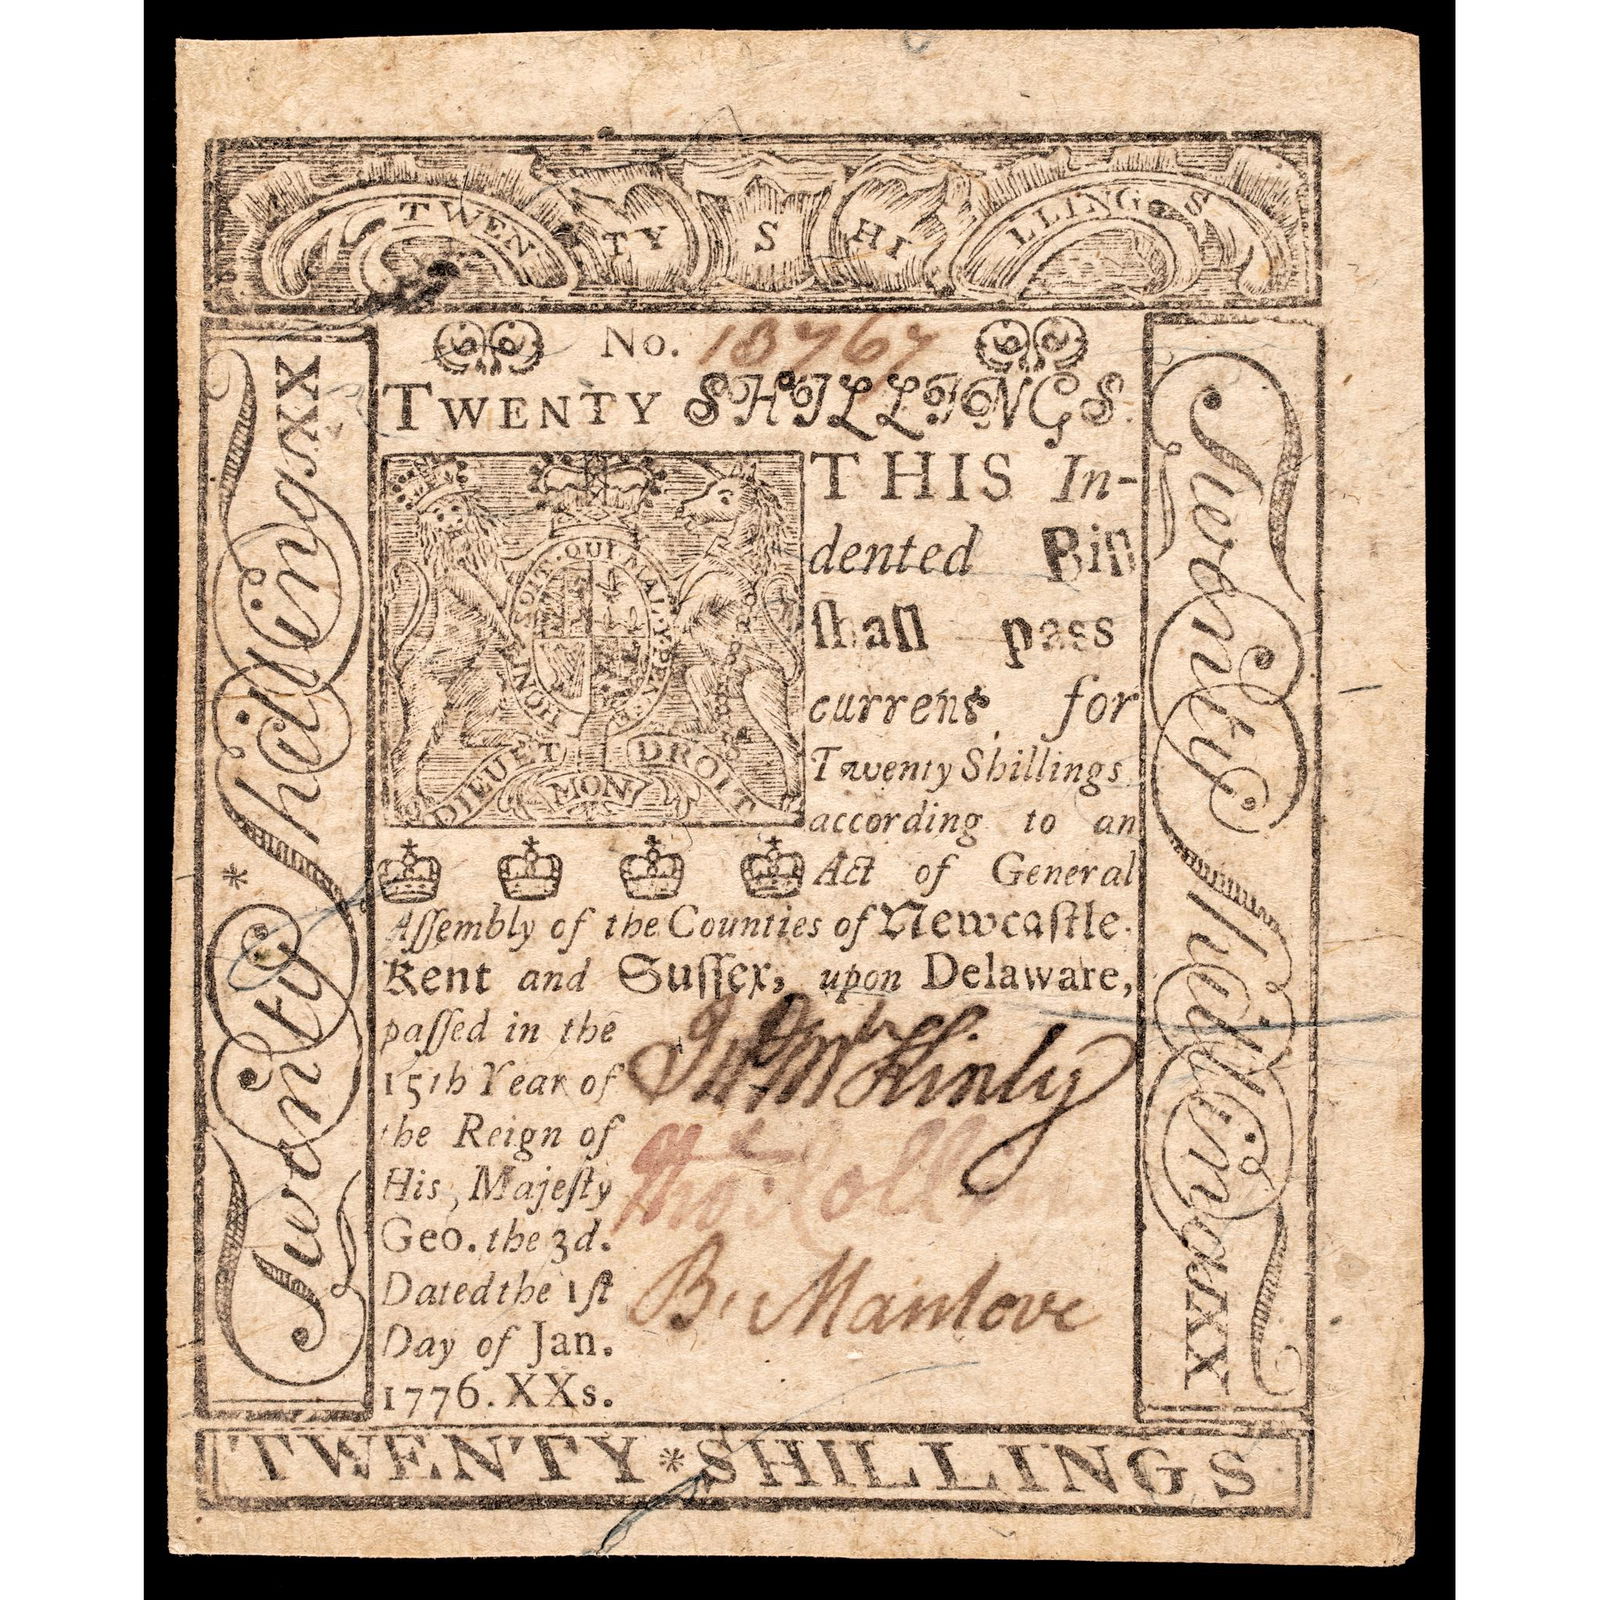 TWENTY SHILLINGS
No. 18767
TWENTY SHILLINGS.
THIS In-
dented Bill
ſhall paſs
current for
Twenty Shillings
according to an
Act of General
Aſſembly of the Counties of Newcaſtle
Kent and Suſſex, upon Delaware,
paſſed in the
15th Year of
the Reign of
His Majeſty
Geo. the 3d.
Dated the 1ſt
Day of Jan.
1776. XXs.
HONI·SOIT·QUI·MAL·Y·PENSE
DIEU ET MON DROIT
Jno McKinly
Thos Collins
B. Manlove
Twenty * ShillingsXX
Twenty ShillingsXX
TWENTY * SHILLINGS